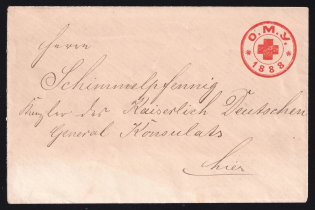 O.M.У.
1888
Herrn
Schimmelpfennig
Kanzler des Kaiserlich Deutschen
General Konsulats
hier